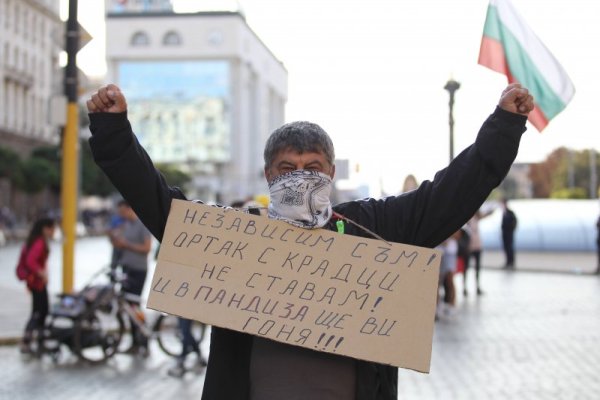 НЕЗАВИСИМ СЪМ!
ОРТАК С КРАДЦИ
НЕ СТАВАМ!
И В ПАНДИЗА ЩЕ ВИ
ГОНЯ!!!